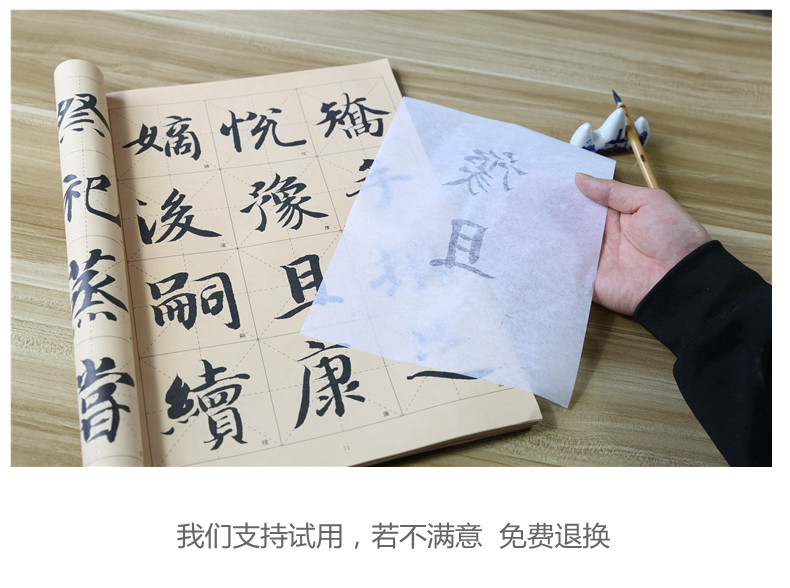 矯
悦豫且康
嫡後嗣續
祭祀蒸嘗
豫且
71
我们支持试用，若不满意 免费退换